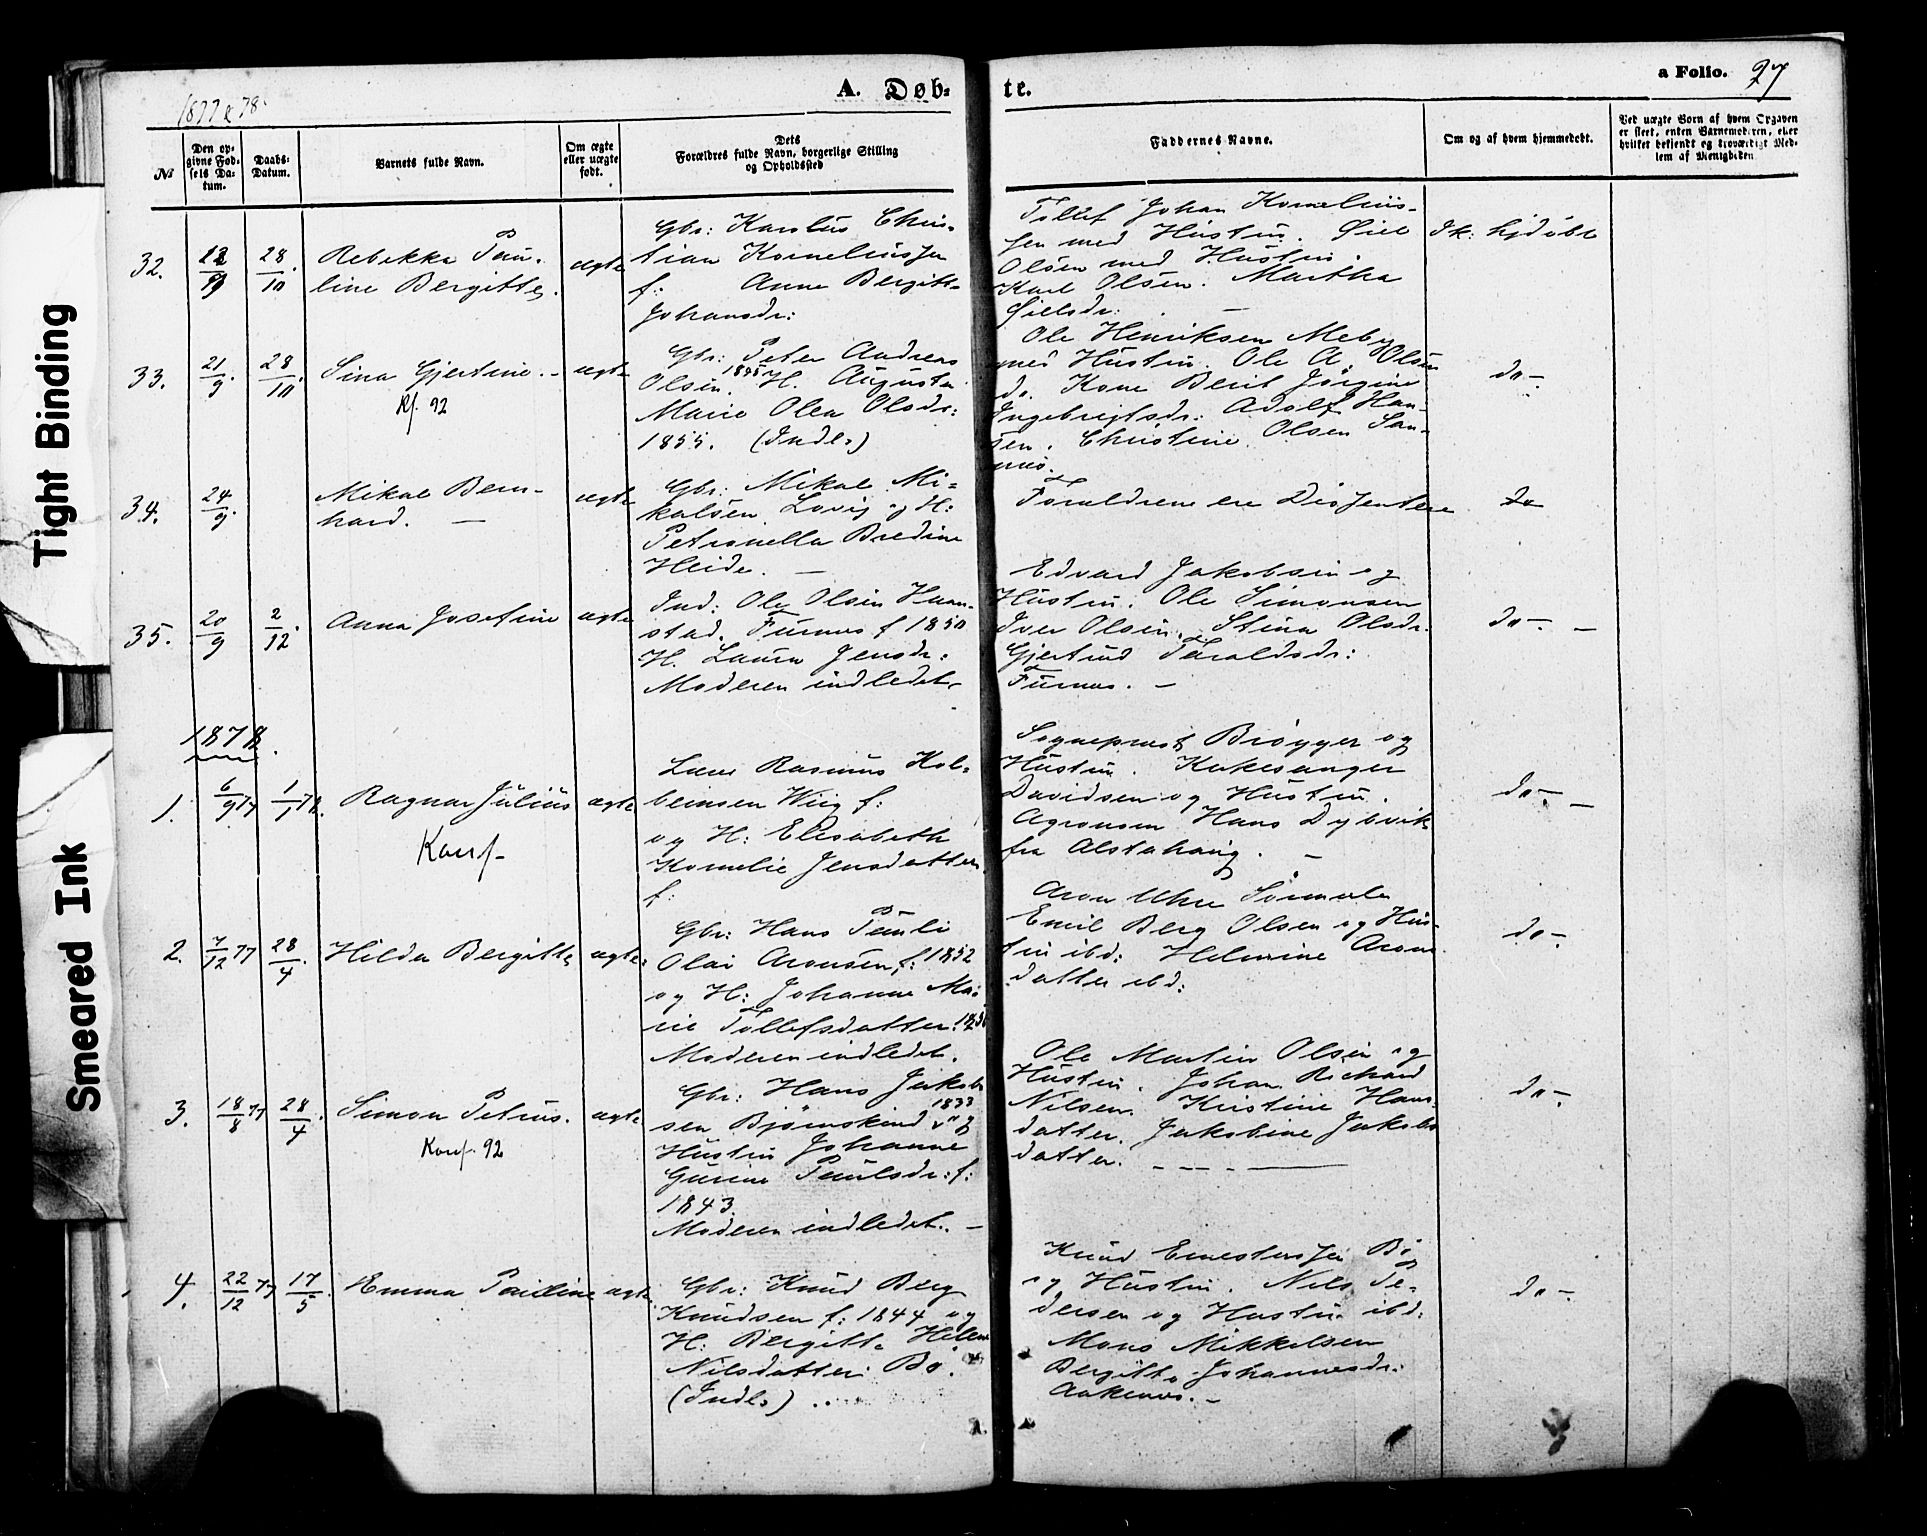 Tight Binding
Smeared Ink
1877 & 78.
A. Døb-
te.
a Folio. 27
No
Den op-
givne Fød-
sels Da-
tum.
Daabs-
Datum.
Barnets fulde Navn.
Om ægte
eller uægte
født.
Dets
Forældres fulde Navn, borgerlige Stilling
og Opholdssted
Faddernes Navne.
Om og af hvem hjemmedøbt.
Ved uægte Børn af hvem Opgaven
er skeet, enten Barnemoderen, eller
hvilket bekjendt og troværdigt Med-
lem af Menigheden
32.
12/9
28/10.
Rebekka Pau-
line Bergitte.
ægte
Gbr: Karolus Chris-
tian Korneliussen
f: Anne Bergitte
Johansdr:
Tollef Johan Kornelius-
sen med Hustru.
Olsen med Hustru.
Karl Olsen. Martha
Ik: hjdøbt
33.
21/9.
28/10.
Sina Gjertine. -
Kf. 92
ægte
Gbr: Peter Andreas
Olsen. 1855 H. Augusta
Marie Olea Olsdr:
1855. (Indl:)
Ole Henriksen Meby
Hustru. Ole A. Olsen
do. Kone Berit Jørgine
Ingebrigtsdr: Adolf Han-
sen. Christine Olsen San-
nes.
do-.
34.
24/9.
Mikal Bern-
hard. —
ægte
Gbr: Mikal Mi-
kalsen Lovig og H:
Petronella Bredine
Heide. —
Forældrene ere Dissentere
do
35.
20/9
2/12.
Anna Josefine
ægte
Ind: Ole Olsen Haan-
stad. Furnes f 1850
H. Laura Jensdr:
Moderen indledet.
Edvard Jakobsen og
Hustru. Ole Simonsen
Iver Olsen. Stina Olsdr.
Gjertrud Taraldsdr:
Furnes. —
do-. —
1878.
1.
6/9 77
1/1 78.
Ragnar Julius
Konf-
ægte
Lars Rasmus Kol-
beinsen Wiig f:
og H: Elisabeth
Kornelie Jensdatter
f:
Sogneprest Brøgger og
Hustru.
Davidsen og Hustru.
Agronom Hans Dybvik
fra Alstahaug. —
do-. —
2.
7/12 77
28/4.
Hilda Bergitte
ægte:
Gbr: Hans Pauli
Olai Aronsen f: 1852
og H: Johanne Ma-
rie Tollefsdatter.
Moderen indledet.
Aron
Emil Berg Olsen og Hus-
tru ibd: Helmine Arons
datter ibd:
do-.
3.
18/8 77
28/4.
Simon Petrus.
Konf. 92
ægte
Gbr: Hans Jakob-
sen Bjørnskind 1833 og
Hustru Johanne
Gurine Paulsdr: f:
1843.
Moderen indledet. —
Ole Martin Olsen og
Hustru. Johan Richard
Nilsen. Kristine Hans-
datter. Jakobine Jakobs
datter.
do-.
4.
22/12 77
17/5.
Emma Pauline
ægte
Gbr: Knud Berg
Knudsen f: 1844 og
H: Bergitte Helene
Nilsdatter Bø.
(Indl:)
Knud Ernestussen Bø
og Hustru. Nils Pe-
dersen og Hustru ibd:
Mons Mikkelsen
Bergitte Johannesdr:
Aakenes. —
do-.